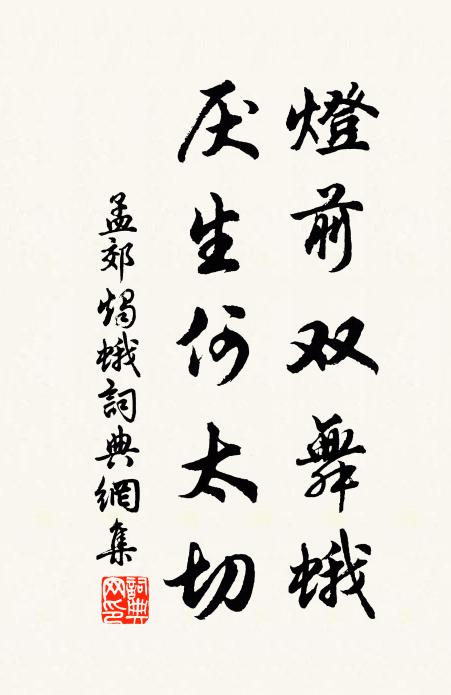 燈前双舞蛾
厌生何太切
孟郊燭蛾詞典網集
詞典网印